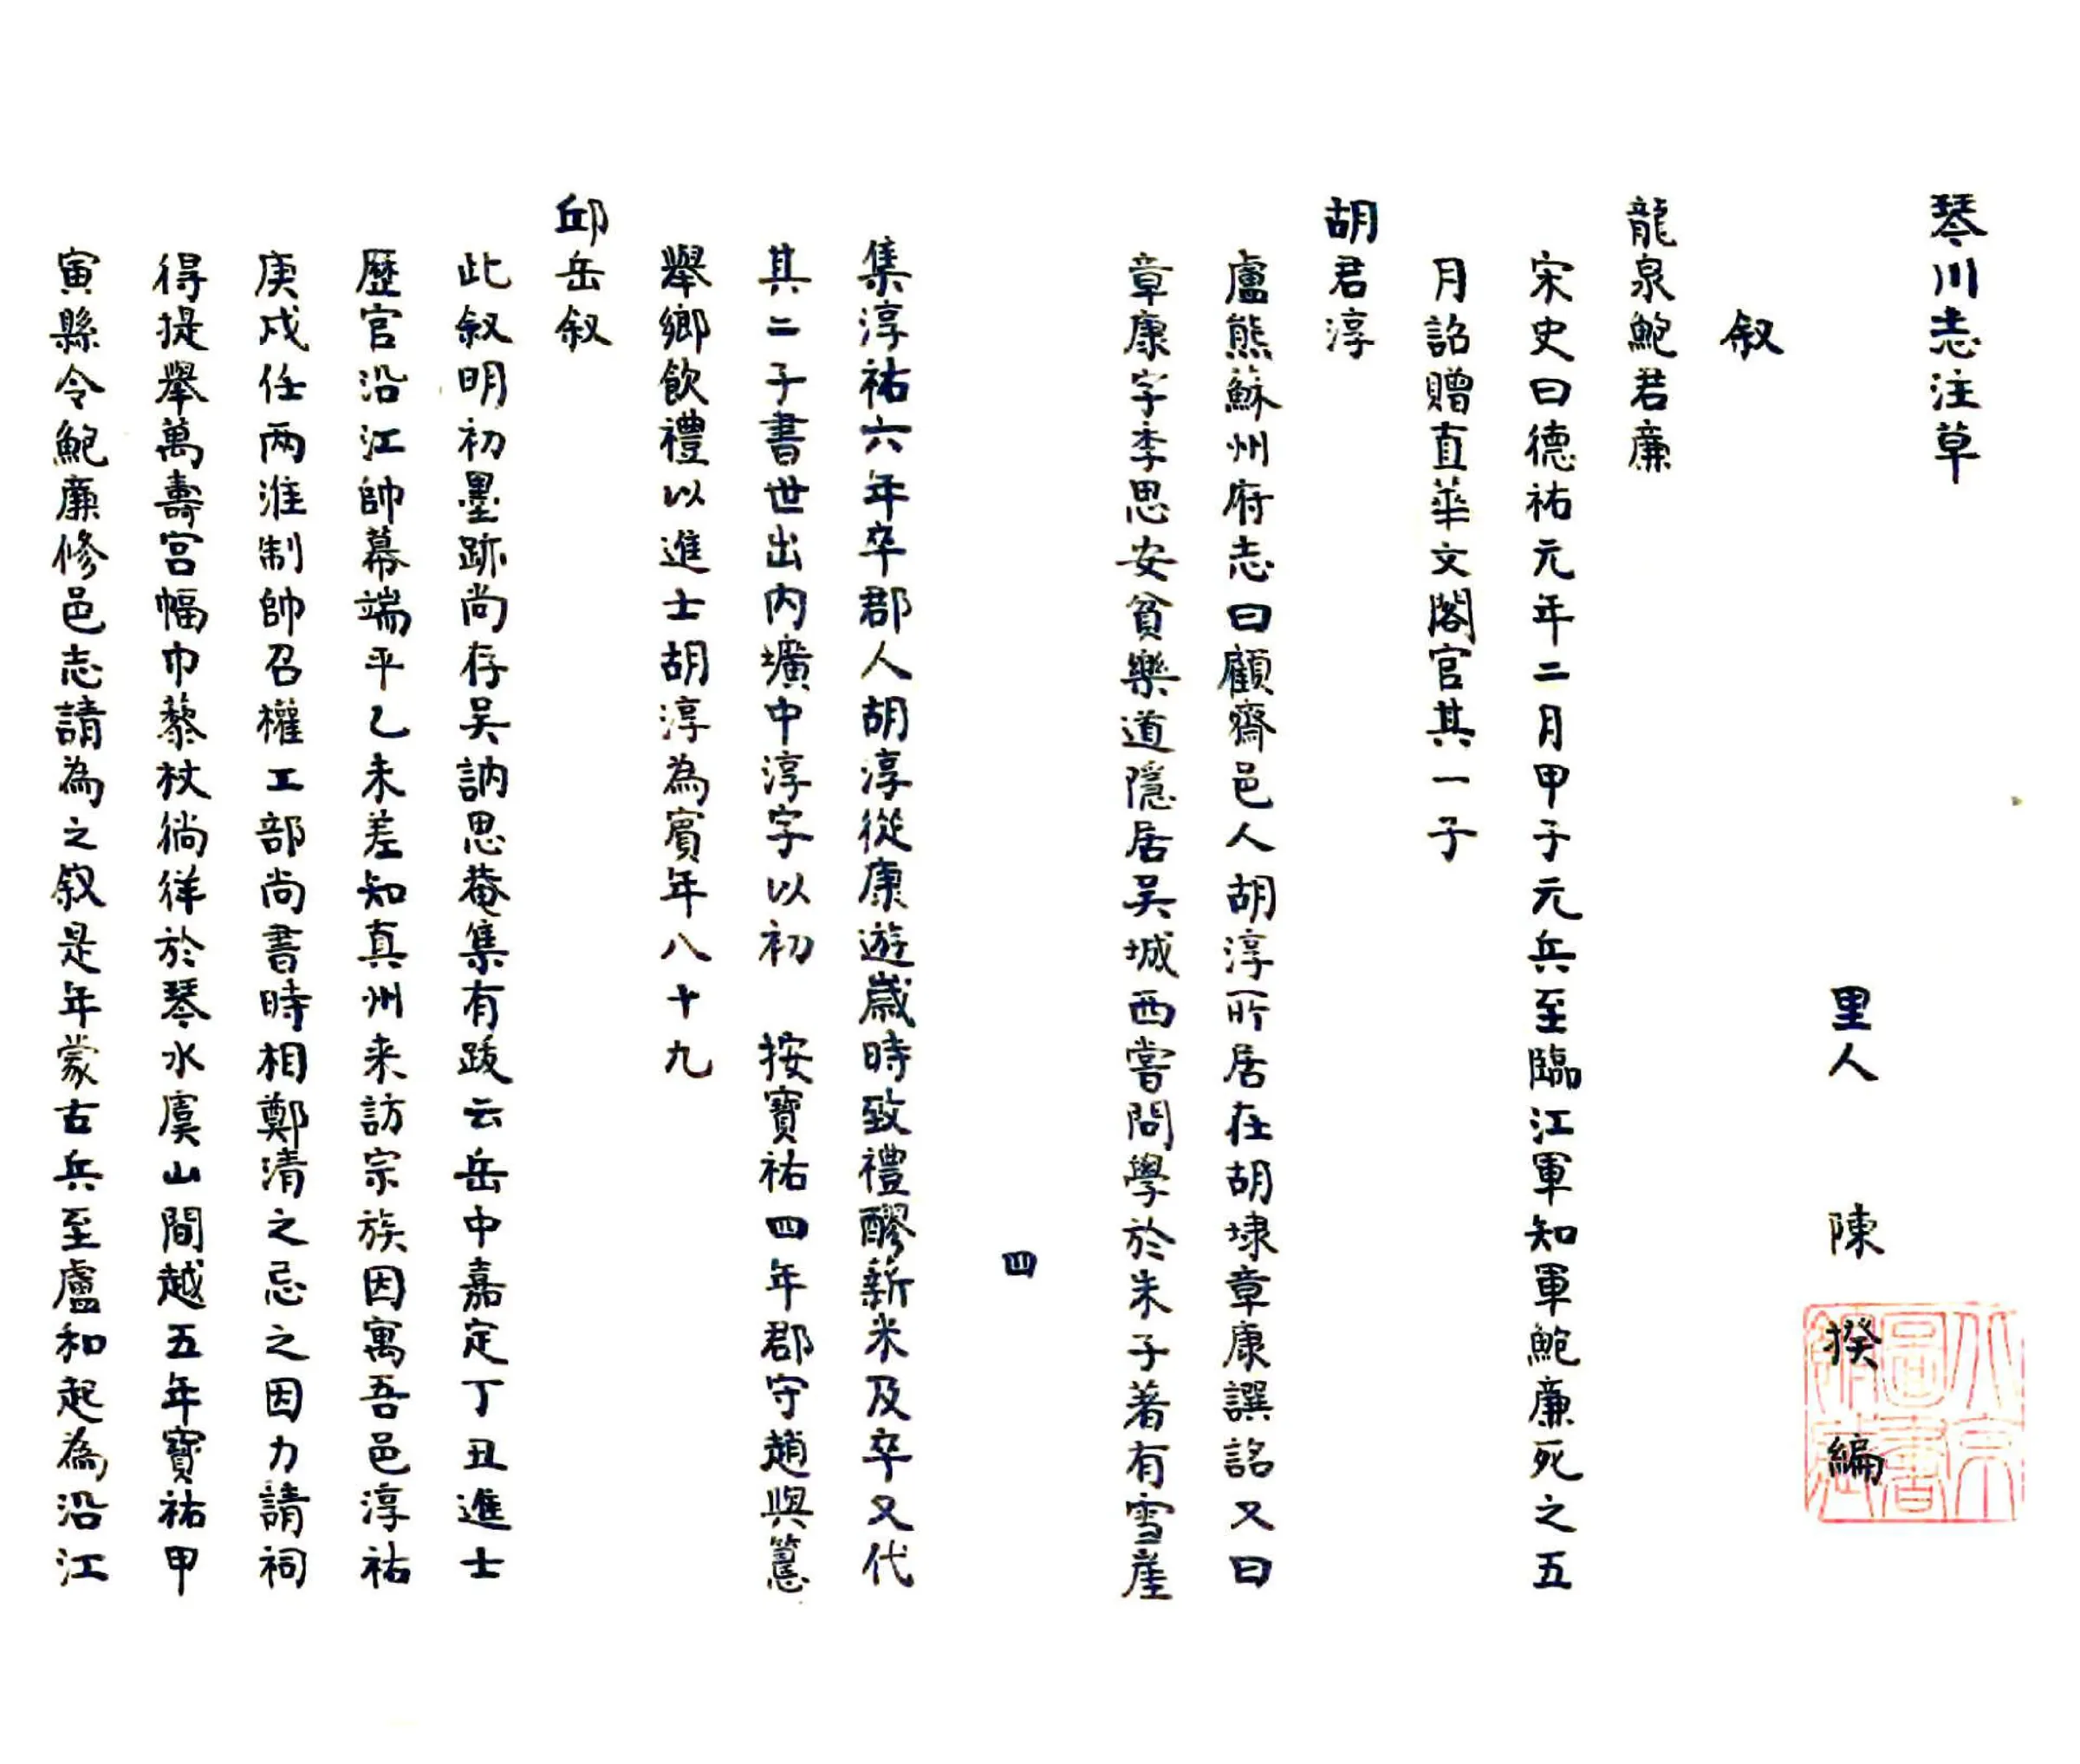 琴川志注草
里人 陳 揆 編
叙
龍泉鮑君廉
宋史曰德祐元年二月甲子元兵至臨江軍知軍鮑廉死之五
月詔贈直華文閣官其一子
胡君淳
盧熊蘇州府志曰顧齋邑人胡淳所居在胡埭章康譔銘又曰
章康字季思安貧樂道隱居吴城西嘗問學於朱子著有雪崖
四
集淳祐六年卒郡人胡淳從康遊歲時致禮醪薪米及卒又代
其二子書世出内壙中淳字以初 按寶祐四年郡守趙與𥲅
舉鄉飲禮以進士胡淳為賓年八十九
邱岳叙
此叙明初墨跡尚存吴訥思菴集有跋云岳中嘉定丁丑進士
歷官沿江帥幕端平乙未差知真州来訪宗族因寓吾邑淳祐
庚戌任兩淮制帥召權工部尚書時相鄭清之忌之因力請祠
得提舉萬壽宫幅巾藜杖徜徉於琴水虞山間越五年寶祐甲
寅縣令鮑廉修邑志請為之叙是年蒙古兵至盧和起為沿江